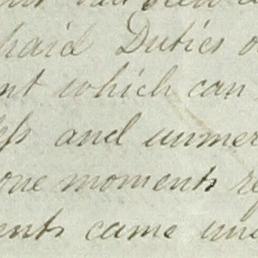 paid Duties o
nt which can
ess and unmer
one moments re
ents came un